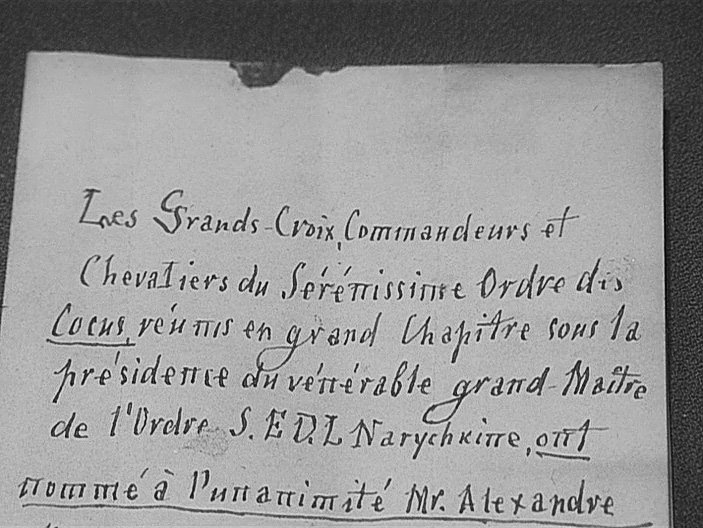 Les Grands-Croix, Commandeurs et
Chevaliers du Sérénissime Ordre des
Cocus, réunis en grand Chapitre sous la
présidence du vénérable grand-Maître
de l'Ordre S. E D. L Narychkine, ont
nommé à l'unanimité Mr. Alexandre